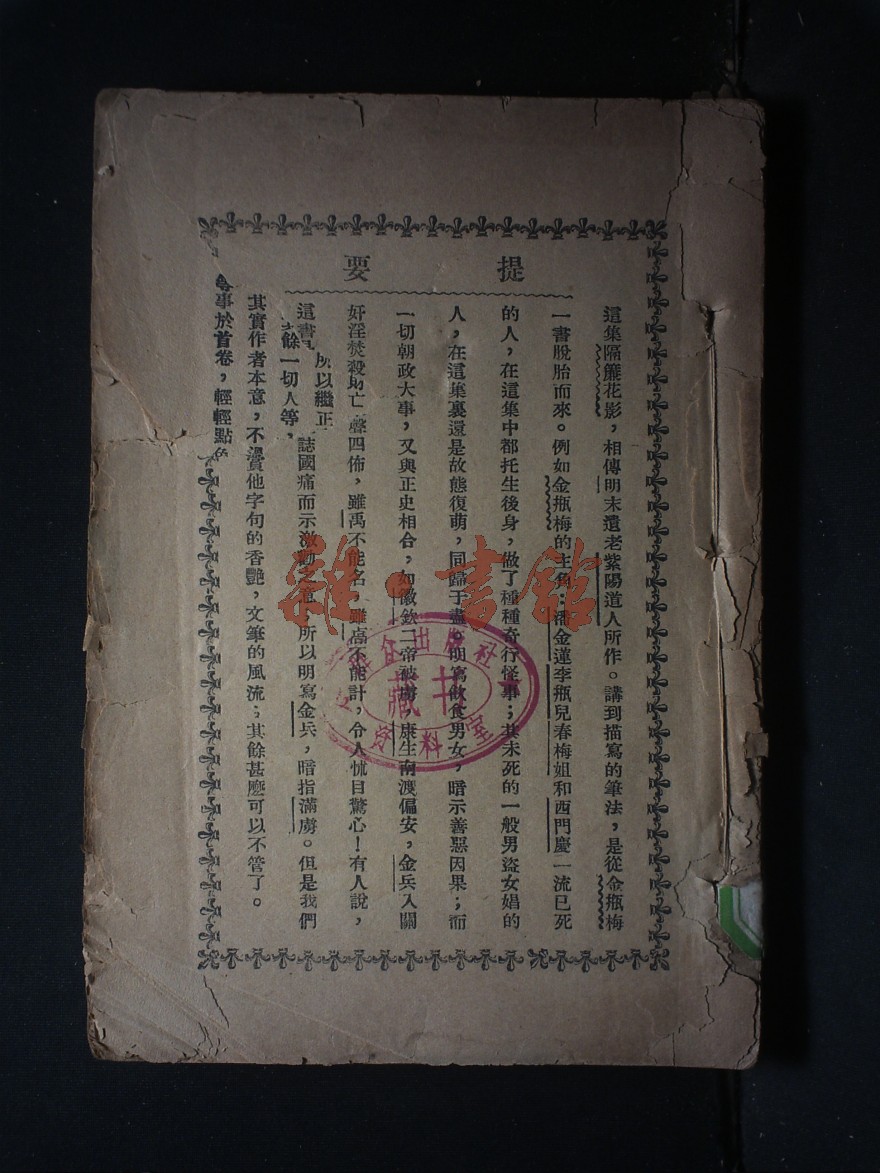 提要
這集隔簾花影，相傳明末遺老紫陽道人所作。講到描寫的筆法，是從金瓶梅
一書脫胎而來。例如金瓶梅的主角：潘金蓮李瓶兒春梅姐和西門慶一流已死
的人，在這集中都托生後身，做了種種奇行怪事；其未死的一般男盜女娼的
人，在這集裏還是故態復萌，同歸于盡。明寫飲食男女，暗示善惡因果；而
一切朝政大事，又與正史相合，如徽欽二帝被虜，康生南渡偏安，金兵入關
奸淫焚殺 亡 聲四佈，雖禹不能名 雖卨不能計，令人怵目驚心！有人說，
這書 所以繼正 誌國痛而示激勸之意 所以明寫金兵，暗指滿虜。但是我們
餘一切人等，
其實作者本意，不 他字句的香艷，文筆的風流；其餘甚麼可以不管了。
事於首卷，輕輕點
雜·書館
出版社
藏書
資料室